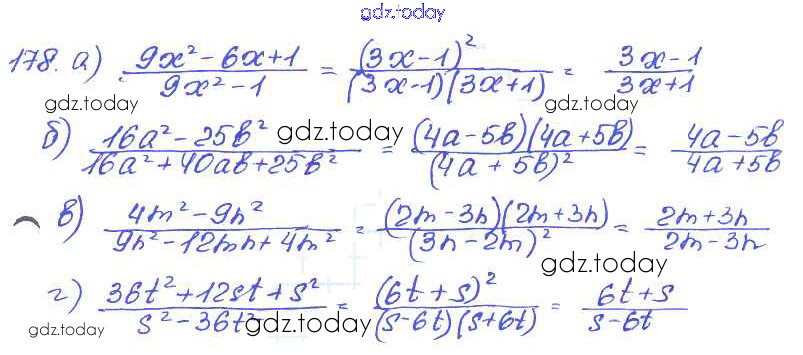 gdz.today
178. а) (9x² - 6x + 1)/(9x² - 1) = (3x - 1)²/((3x - 1)(3x + 1)) = (3x - 1)/(3x + 1)
gdz.today gdz.today
б) (16a² - 25b²)/(16a² + 40ab + 25b²) = ((4a - 5b)(4a + 5b))/(4a + 5b)² = (4a - 5b)/(4a + 5b)
gdz.today gdz.today
в) (4m² - 9n²)/(9n² - 12mn + 4m²) = ((2m - 3n)(2m + 3n))/(3n - 2m)² = (2m + 3n)/(2m - 3n)
gdz.today gdz.today
г) (36t² + 12st + s²)/(s² - 36t²) = (6t + s)²/((s - 6t)(s + 6t)) = (6t + s)/(s - 6t)
gdz.today gdz.today